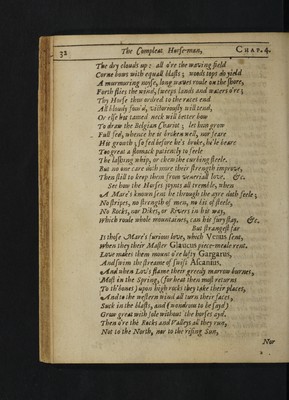 32 The Compleat Horse-man, CHAP. 4.
The dry clouds up: all o're the waving field
Corne bows with equall blasts; woods tops do yield
A murmuring noise, long waves roule on the shore,
Forth flies the wind, sweeps lands and waters o're;
Thy Horse thus ordred to the races end
All bloudy fum'd, victoriously will tend,
Or else his tamed neck will better bow
To draw the Belgian Chariot; let him grow
Full fed, whence he is broken well, nor feare
His growth; so fed before he's broke, he'le beare
Too great a stomack patiently to feele
The lashing whip, or chew the curbing steele.
But no one care doth more their strength improve,
Then still to keep them from veneriall love. &c.
See how the Horses joynts all tremble, when
A Mare's known sent he through the ayre doth feele;
No stripes, no strength of men, no bit of steele,
No Rocks, nor Dikes, or Rivers in his way,
Which roule whole mountaines, can his fury stay. &c.
But strangest far
Is those Mare's furious love, which Venus sent,
When they their Master Glaucus piece-meale rent.
Love makes them mount o're lofty Gargarus,
And swim the streame of swift Ascanius,
And when Lov's flame their greedy marrow burnes,
Most in the Spring, (for heat then most returns
To th'bones) upon high rocks they take their places,
And to the western wind all turn their faces,
Suck in the blasts, and (wondrous to be sayd)
Grow great with fole without the horses ayd.
Then o're the Rocks and Valleys all they run,
Not to the North, nor to the rising Sun,
Nor